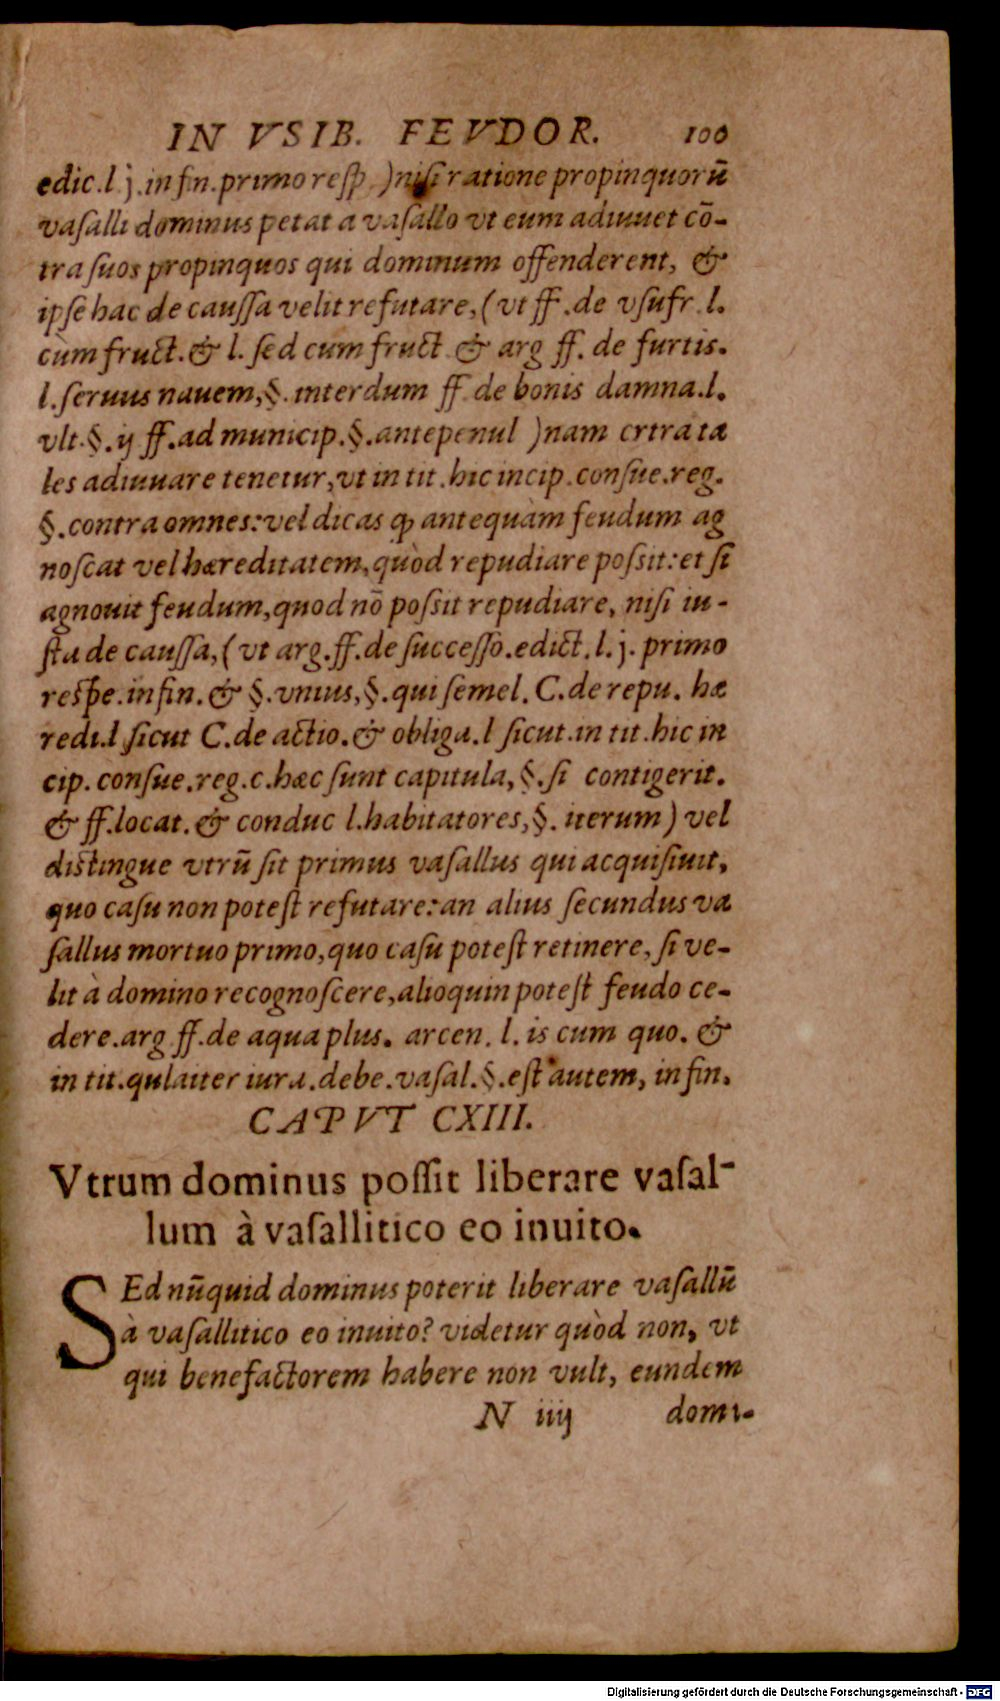 IN VSIB. FEVDOR. 100
edic.l j.in fin.primo resp )nisi ratione propinquorū
vasalli dominus petat a vasallo vt eum adiuuet cō-
tra suos propinquos qui dominum offenderent, &
ipse hac de caussa velit refutare,(vt ff.de vsufr.l.
cùm fruct.& l. sed cum fruct & arg ff. de furtis.
l.seruus nauem,§.interdum ff de bonis damna.l.
vlt.§.ij ff.ad municip.§.antepenul )nam crtra ta
les adiuuare tenetur,vt in tit.hic incip.consue.reg.
§.contra omnes:vel dicas ꝙ antequàm feudum ag
noscat vel hæreditatem,quòd repudiare possit:et si
agnouit feudum,quod nō possit repudiare, nisi iu-
sta de caussa,(vt arg.ff.de successo.edict.l.j.primo
respe.in fin.& §.vnius,§.qui semel.C.de repu. hæ
redi.l sicut C.de actio.& obliga.l sicut.in tit.hic in
cip. consue.reg.c.hæc sunt capitula,§.si contigerit.
& ff.locat.& conduc l.habitatores,§. iterum) vel
distingue vtrū sit primus vasallus qui acquisiuit,
quo casu non potest refutare:an alius secundus va
sallus mortuo primo,quo casu potest retinere, si ve-
lit à domino recognoscere,alioquin potest feudo ce-
dere.arg ff.de aqua plus. arcen. l. is cum quo. &
in tit.qulaiter iura.debe.vasal.§.est autem, in fin.
CAPVT CXIII.
Vtrum dominus possit liberare vasal-
lum à vasallitico eo inuito.
SEd nūquid dominus poterit liberare vasallū
à vasallitico eo inuito? videtur quòd non, vt
qui benefactorem habere non vult, eundem
N iiij domi-
Digitalisierung gefördert durch die Deutsche Forschungsgemeinschaft - DFG